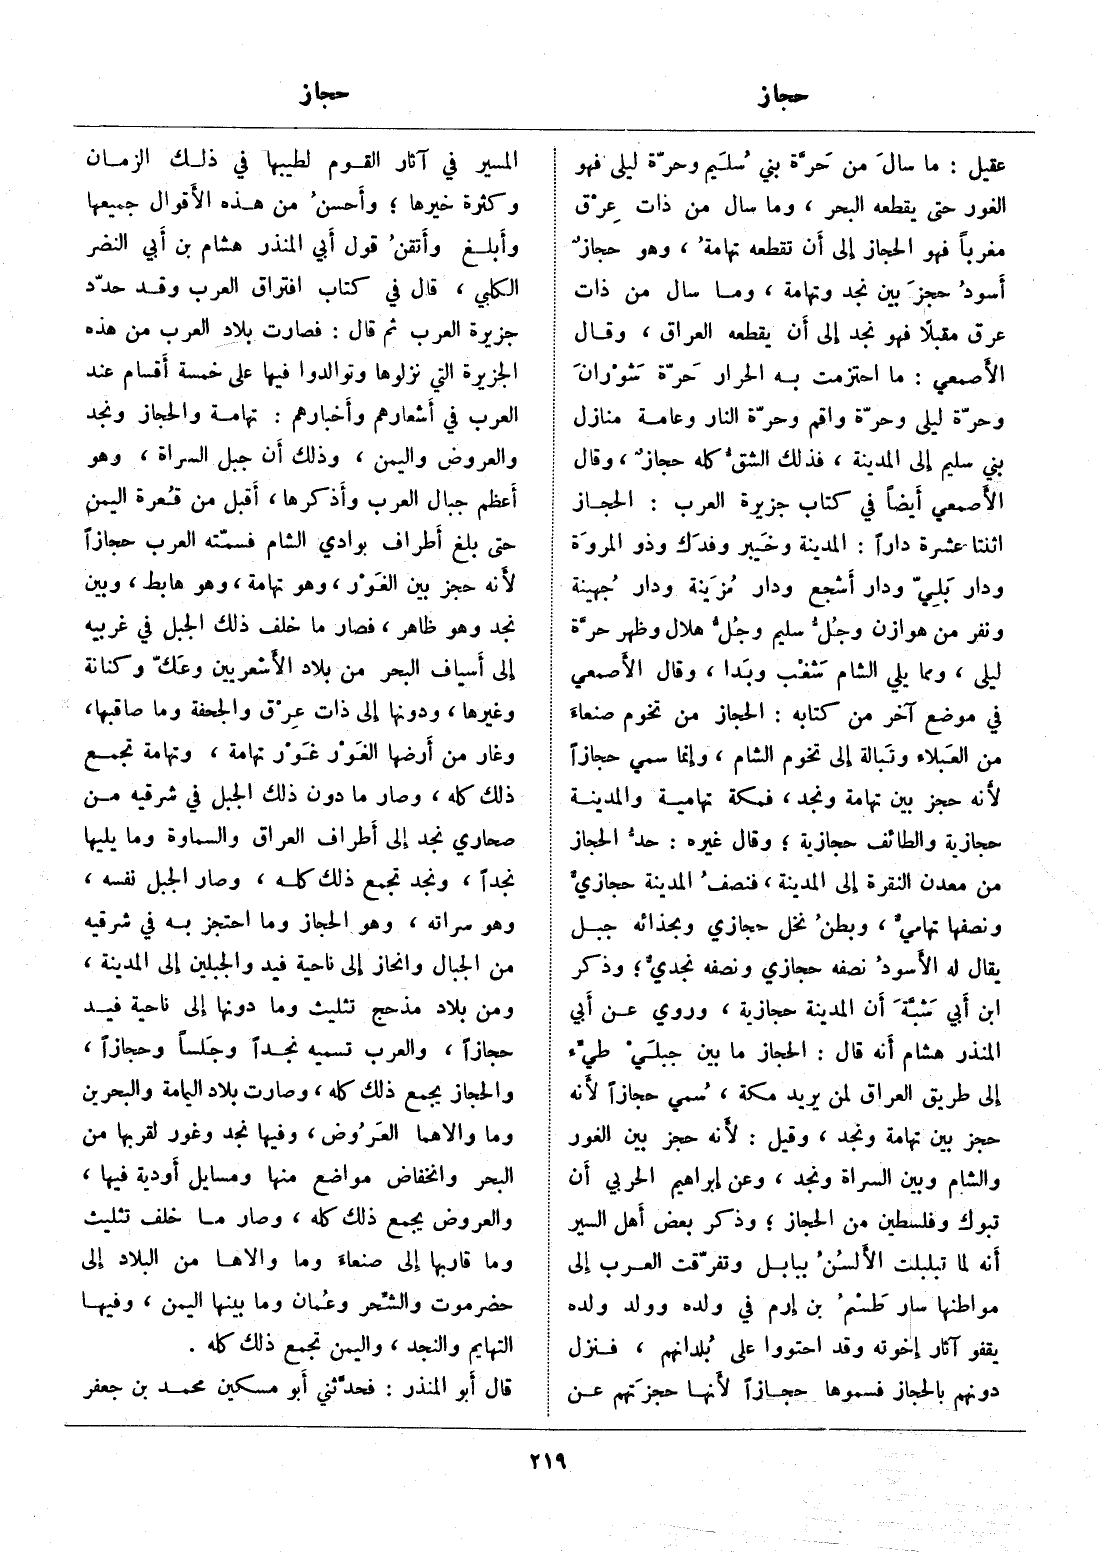 حجاز
حجاز
عقيل : ما سالَ من حَرَّة بني سُليم وحرّة ليلى فهو
الغور حتى يقطعه البحر ، وما سال من ذات عِرْق
مغرباً فهو الحجاز إلى أن تقطعه تهامةُ ، وهو حجازٌ
أسودُ حجزَ بين نجد وتهامة ، وما سال من ذات
عرق مقبلًا فهو نجد إلى أن يقطعه العراق ، وقال
الأصمعي : ما احتزمت به الحرار حَرّة شَوْرانَ
وحرّة ليلى وحرّة واقم وحرّة النار وعامة منازل
بني سليم إلى المدينة ، فذلك الشقُّ كله حجازٌ ، وقال
الأصمعي أيضاً في كتاب جزيرة العرب : الحجاز
اثنتا عشرة داراً : المدينة وخَيبر وفدَك وذو المروَة
ودار بَلِيّ ودار أشجع ودار مُزَينة ودار جُهينة
ونفر من هوازن وجُلُّ سليم وجُلُّ هلال وظهر حرَّة
ليلى ، ومما يلي الشام شَغْب وبَدا ، وقال الأصمعي
في موضع آخر من كتابه : الحجاز من تخوم صنعاءَ
من العَبلاء وتَبالة إلى تخوم الشام ، وإنما سمي حجازاً
لأنه حجز بين تهامة ونجد ، فمكة تهامية والمدينة
حجازية والطائف حجازية ؛ وقال غيره : حدُّ الحجاز
من معدن النقرة إلى المدينة ، فنصفُ المدينة حجازيٌّ
ونصفها تهاميٌّ ، وبطنُ نخل حجازي وبحذائه جبل
يقال له الأسودُ نصفه حجازي ونصفه نجديٌّ ؛ وذكر
ابن أبي شَبَّةَ أن المدينة حجازية ، وروي عن أبي
المنذر هشام أنه قال : الحجاز ما بين جبلَيْ طيِّء
إلى طريق العراق لمن يريد مكة ، سُمي حجازاً لأنه
حجز بين تهامة ونجد ، وقيل : لأنه حجز بين الغور
والشام وبين السراة ونجد ، وعن إبراهيم الحربي أن
تبوك وفلسطين من الحجاز ؛ وذكر بعض أهل السير
أنه لما تبلبلت الألسُنُ ببابل وتفرّقت العرب إلى
مواطنها سار طَسْمُ بن إرم في ولده وولد ولده
يقفو آثار إخوته وقد احتووا على بُلدانهم ، فنزل
دونهم بالحجاز فسموها حجازاً لأنها حجزَتهم عن
المسير في آثار القوم لطيبها في ذلك الزمان
وكثرة خيرها ؛ وأحسنُ من هذه الأقوال جميعها
وأبلغ وأتقنُ قول أبي المنذر هشام بن أبي النضر
الكلبي ، قال في كتاب افتراق العرب وقد حدّد
جزيرة العرب ثم قال : فصارت بلاد العرب من هذه
الجزيرة التي نزلوها وتوالدوا فيها على خمسة أقسام عند
العرب في أشعارهم وأخبارهم : تهامة والحجاز ونجد
والعروض واليمن ، وذلك أن جبل السراة ، وهو
أعظم جبال العرب وأذكرها ، أقبل من قُعرة اليمن
حتى بلغ أطراف بوادي الشام فسمّته العرب حجازاً
لأنه حجز بين الغَوْر ، وهو تهامة ، وهو هابط ، وبين
نجد وهو ظاهر ، فصار ما خلف ذلك الجبل في غربيه
إلى أسياف البحر من بلاد الأشعريين وعَكّ وكنانة
وغيرها ، ودونها إلى ذات عِرْق والجحفة وما صاقبها ،
وغار من أرضها الغَوْر غَوْر تهامة ، وتهامة تجمع
ذلك كله ، وصار ما دون ذلك الجبل في شرقيه من
صحاري نجد إلى أطراف العراق والسماوة وما يليها
نجداً ، ونجد تجمع ذلك كله ، وصار الجبل نفسه ،
وهو سراته ، وهو الحجاز وما احتجز به في شرقيه
من الجبال وانحاز إلى ناحية فيد والجبلين إلى المدينة ،
ومن بلاد مذحج تثليث وما دونها إلى ناحية فيد
حجازاً ، والعرب تسميه نجداً وجَلساً وحجازاً ،
والحجاز يجمع ذلك كله ، وصارت بلاد اليمامة والبحرين
وما والاهما العَرُوض ، وفيها نجد وغور لقربها من
البحر وانخفاض مواضع منها ومسايل أودية فيها ،
والعروض يجمع ذلك كله ، وصار ما خلف تثليث
وما قاربها إلى صنعاءَ وما والاها من البلاد إلى
حضرموت والشّحر وعُمان وما بينها اليمن ، وفيها
التهايم والنجد ، واليمن تجمع ذلك كله .
قال أبو المنذر : فحدَّثني أبو مسكين محمد بن جعفر
٢١٩